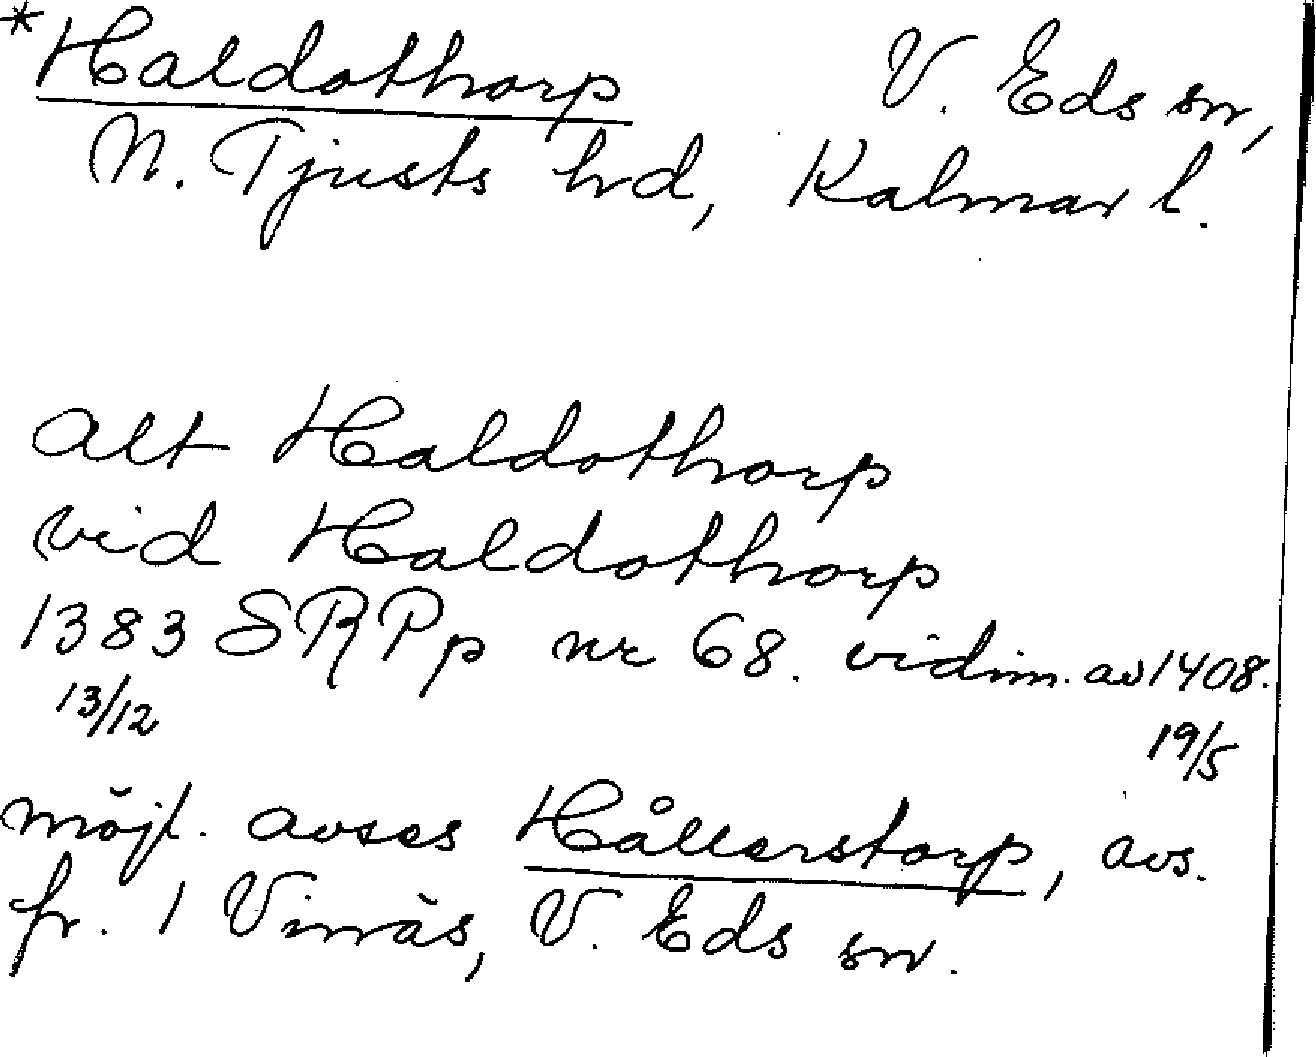 *Haldothorp V. Eds sn,
N. Tjusts hd, Kalmar l.
alt Haldothorp
vid Haldothorp
1383 SRPp nr 68. vidim. av 1408.
13/12 19/5
möjl. avses Hållerstorp, avs.
fr. 1 Vinäs, V. Eds sn.